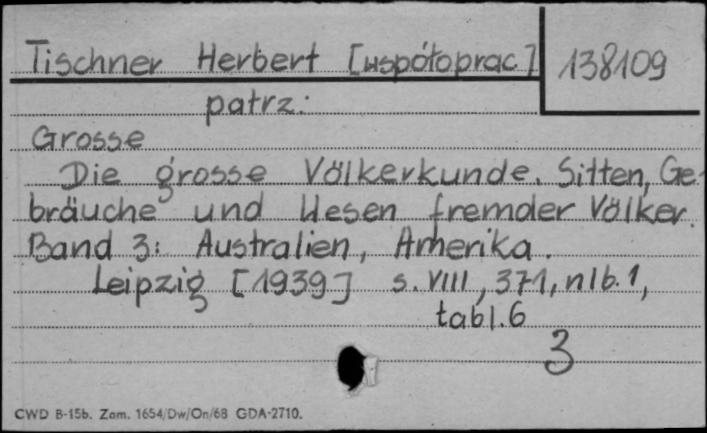 Tischner Herbert [współoprac] 138109
patrz:
Grosse
Die grosse Völkerkunde. Sitten, Ge-
bräuche und Wesen fremder Völker.
Band 3: Australien, Amerika.
Leipzig [1939] s. VIII, 371, nlb. 1,
tabl. 6
3
CWD B-15b. Zam. 1654/Dw/On/68 GDA-2710.